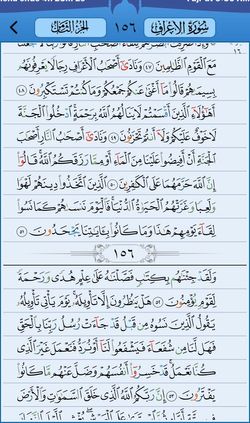 سورة الأعراف ١٥٦ الجزء الثامن
مَعَ الْقَوْمِ الظَّالِمِينَ ٤٧ وَنَادَىٰ أَصْحَابُ الْأَعْرَافِ رِجَالًا يَعْرِفُونَهُم
بِسِيمَاهُمْ قَالُوا مَا أَغْنَىٰ عَنكُمْ جَمْعُكُمْ وَمَا كُنتُمْ تَسْتَكْبِرُونَ ٤٨
أَهَٰؤُلَاءِ الَّذِينَ أَقْسَمْتُمْ لَا يَنَالُهُمُ اللَّهُ بِرَحْمَةٍ ادْخُلُوا الْجَنَّةَ
لَا خَوْفٌ عَلَيْكُمْ وَلَا أَنتُمْ تَحْزَنُونَ ٤٩ وَنَادَىٰ أَصْحَابُ النَّارِ أَصْحَابَ
الْجَنَّةِ أَنْ أَفِيضُوا عَلَيْنَا مِنَ الْمَاءِ أَوْ مِمَّا رَزَقَكُمُ اللَّهُ قَالُوا
إِنَّ اللَّهَ حَرَّمَهُمَا عَلَى الْكَافِرِينَ ٥٠ الَّذِينَ اتَّخَذُوا دِينَهُمْ لَهْوًا
وَلَعِبًا وَغَرَّتْهُمُ الْحَيَاةُ الدُّنْيَا فَالْيَوْمَ نَنسَاهُمْ كَمَا نَسُوا
لِقَاءَ يَوْمِهِمْ هَٰذَا وَمَا كَانُوا بِآيَاتِنَا يَجْحَدُونَ ٥١
١٥٦
وَلَقَدْ جِئْنَاهُم بِكِتَابٍ فَصَّلْنَاهُ عَلَىٰ عِلْمٍ هُدًى وَرَحْمَةً
لِّقَوْمٍ يُؤْمِنُونَ ٥٢ هَلْ يَنظُرُونَ إِلَّا تَأْوِيلَهُ يَوْمَ يَأْتِي تَأْوِيلُهُ
يَقُولُ الَّذِينَ نَسُوهُ مِن قَبْلُ قَدْ جَاءَتْ رُسُلُ رَبِّنَا بِالْحَقِّ
فَهَل لَّنَا مِن شُفَعَاءَ فَيَشْفَعُوا لَنَا أَوْ نُرَدُّ فَنَعْمَلَ غَيْرَ الَّذِي
كُنَّا نَعْمَلُ قَدْ خَسِرُوا أَنفُسَهُمْ وَضَلَّ عَنْهُم مَّا كَانُوا
يَفْتَرُونَ ٥٣ إِنَّ رَبَّكُمُ اللَّهُ الَّذِي خَلَقَ السَّمَاوَاتِ وَالْأَرْضَ